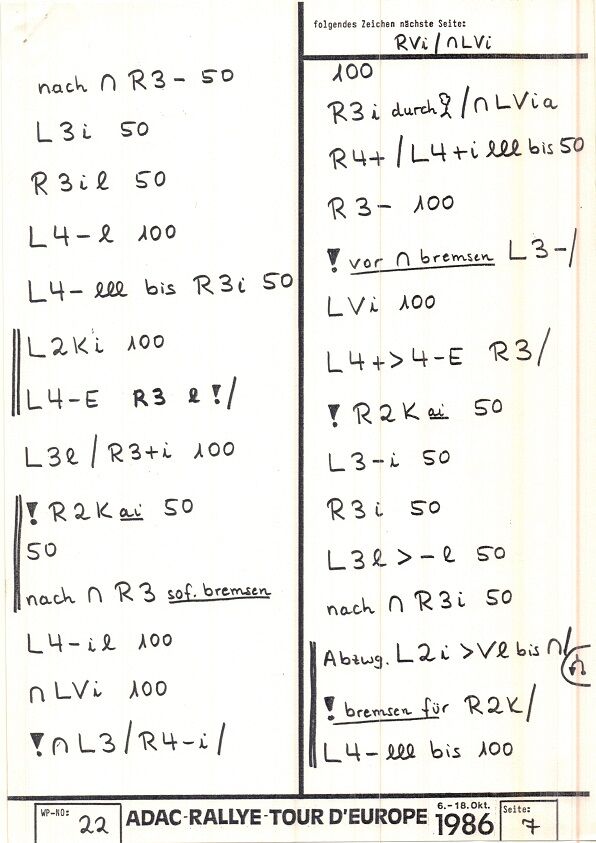 nach ∩ R3- 50
L3i 50
R3il 50
L4-l 100
L4- lll bis R3i 50
L2Ki 100
L4-E R3 l!/
L3l / R3+i 100
! R2K ai 50
50
nach ∩ R3 sof. bremsen
L4-il 100
∩ LVi 100
! ∩ L3/R4-i/
folgendes Zeichen nächste Seite:
RVi/∩LVi
100
R3i durch /∩LVia
R4+/L4+i lll bis 50
R3- 100
! vor ∩ bremsen L3-/
LVi 100
L4+>4-E R3/
! R2K ai 50
L3-i 50
R3i 50
L3l >-l 50
nach ∩ R3i 50
Abzwg. L2i >Vl bis ∩/
! bremsen für R2K/
L4-lll bis 100
WP-NO: 22
ADAC-RALLYE-TOUR D'EUROPE
6.-18.Okt. 1986
Seite: 7